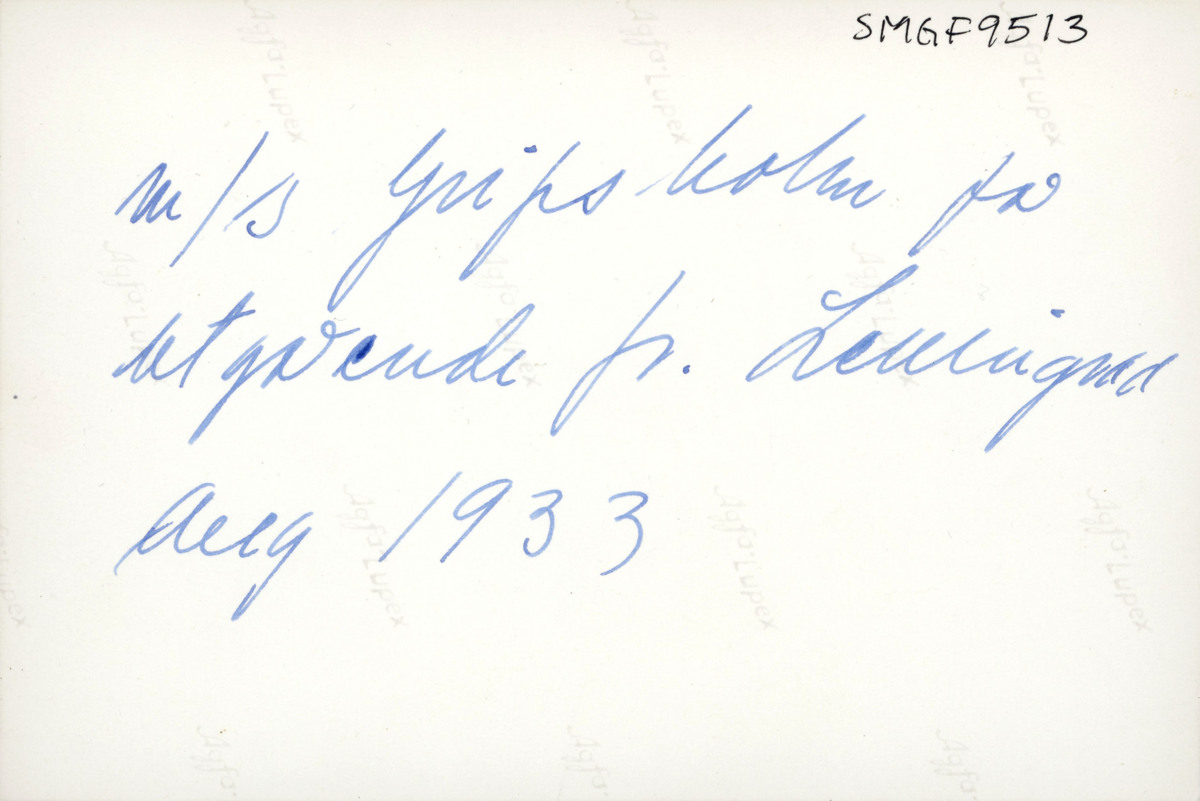 SMGF9513
m/s Gripsholm på
utgående fr. Leningrad
Aug 1933
Agfa-Lupex
Agfa-Lupex
Agfa-Lupex
Agfa-Lupex
Agfa-Lupex
Agfa-Lupex
Agfa-Lupex
Agfa-Lupex
Agfa-Lupex